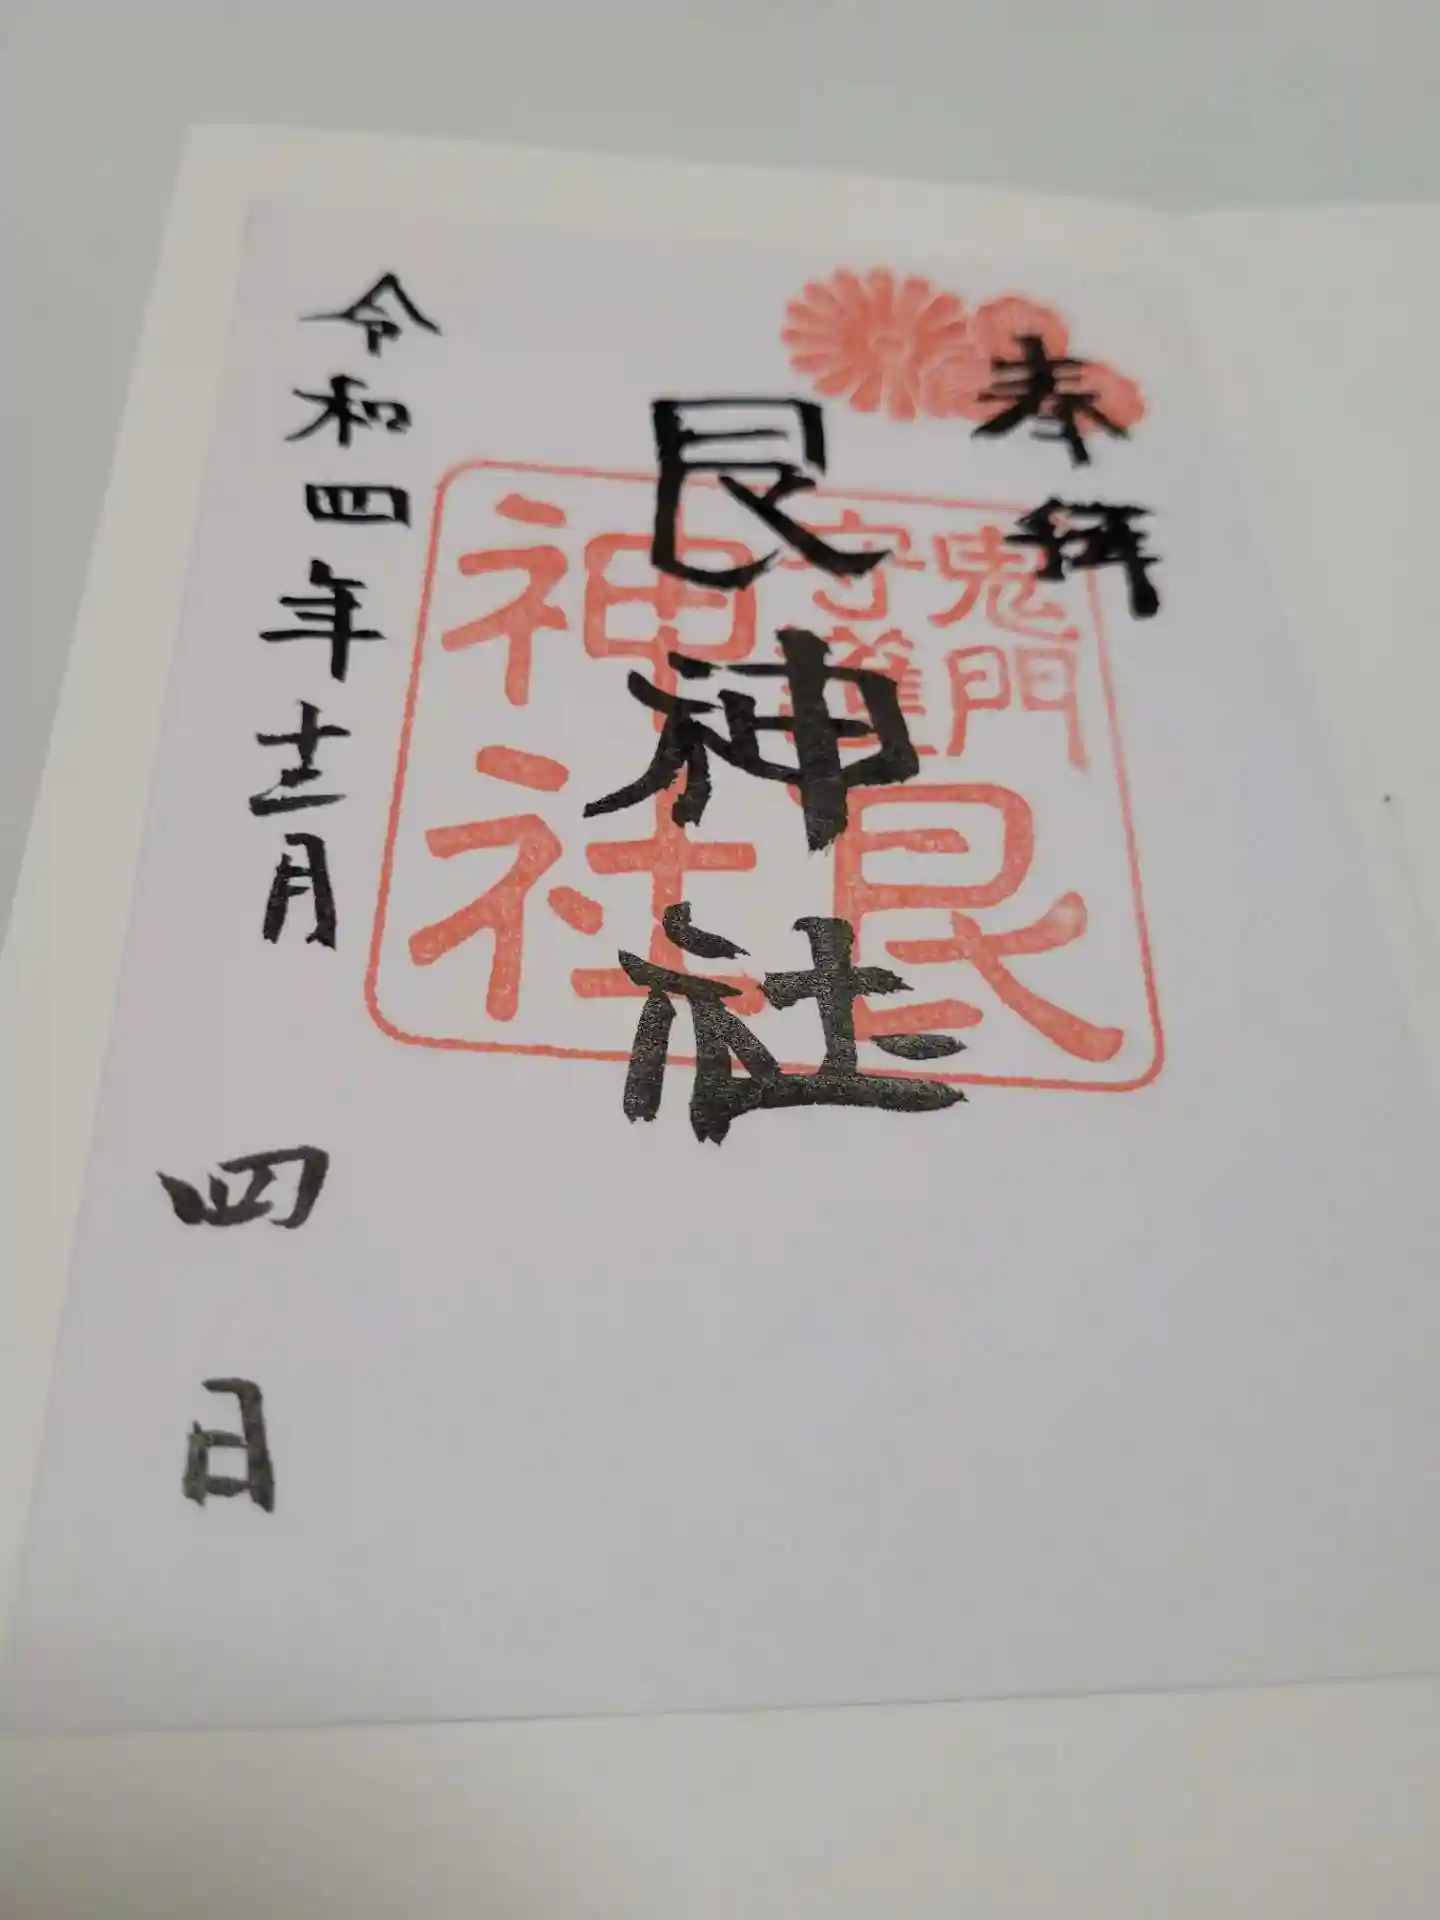 奉拝
鬼門
守護
艮
神社
艮神社
令和四年十二月四日